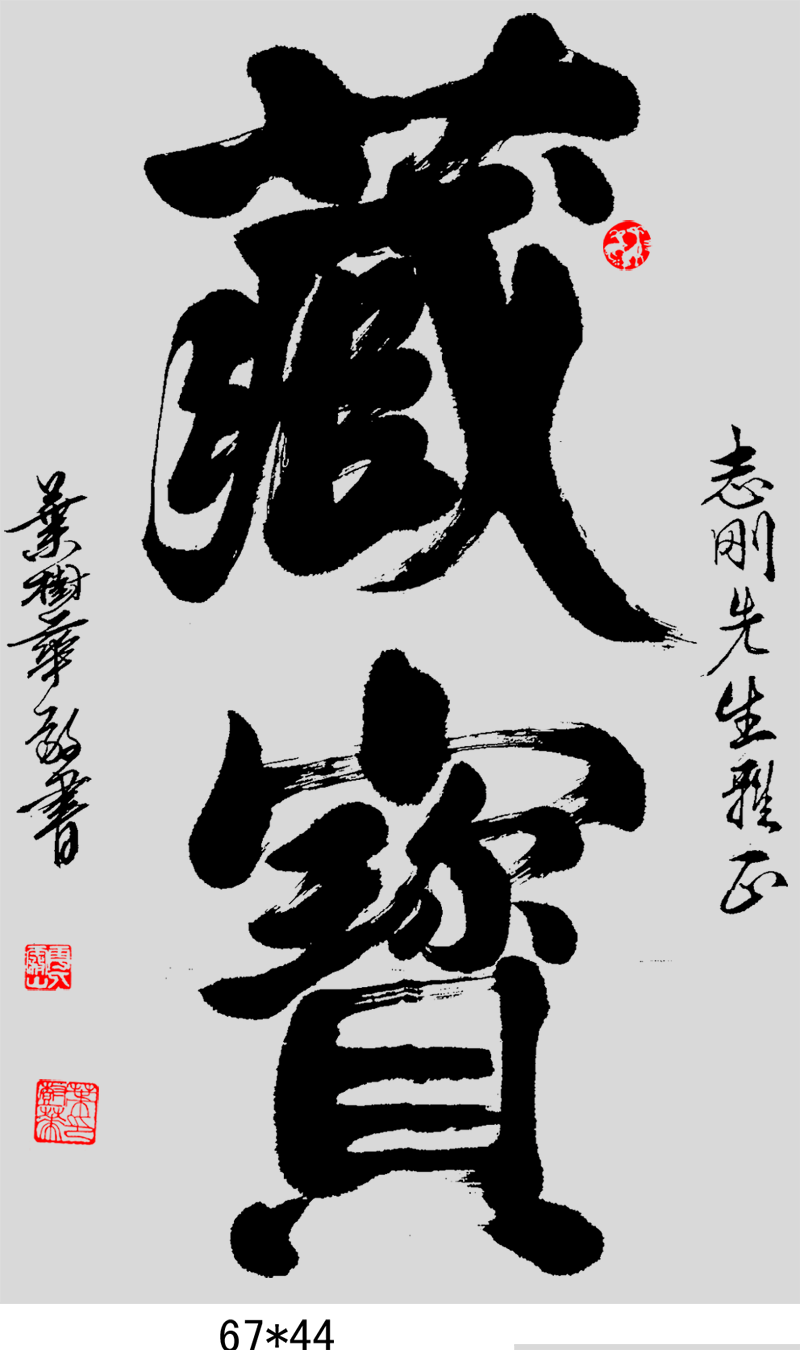 志刚先生雅正
藏寳
葉樹華敬書
67*44